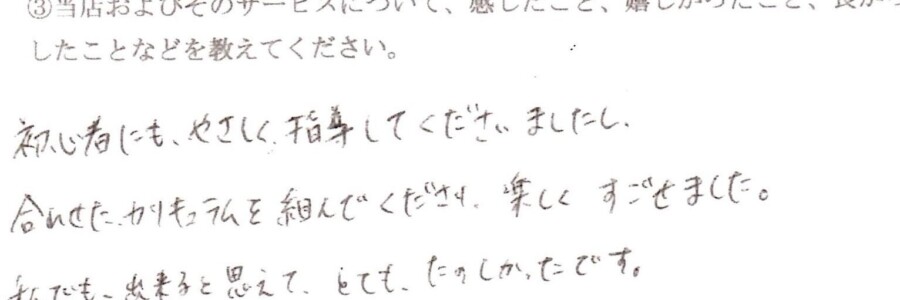 ③当店およびそのサービスについて、感じたこと、嬉しかったこと、良か
したことなどを教えてください。
初心者にも、やさしく、指導してくださいましたし、
合わせた、カリキュラムを組んでくださり、楽しくすごせました。
私でも、出来ると思えて、とても、たのしかったです。